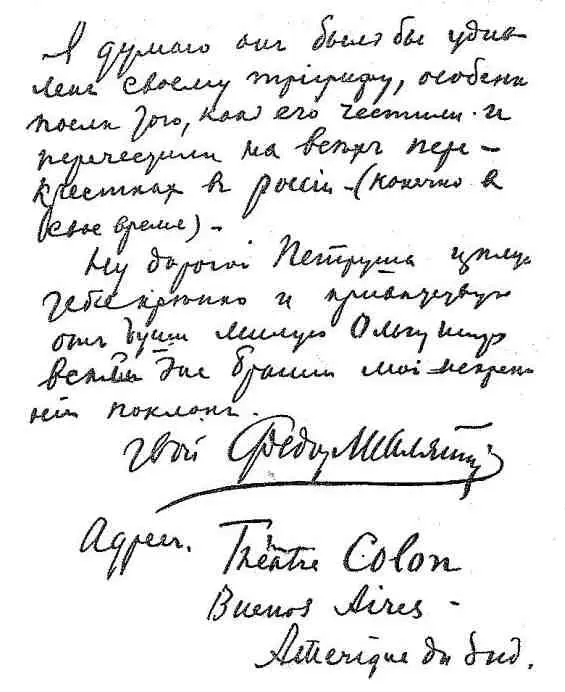 Я думаю онъ былъ бы удив
ленъ своему тріумфу, особенн
послѣ того, как его честили и
перечестили на всѣхъ пере-
крестках в россіи - (конечно в
свое время) -
Ну дорогой Петруша цѣлую
тебя крѣпко и привѣтствую
отъ души милую Ольгу
всѣмъ мой искрен
ній поклонъ.
твой Федор Шаляпинъ
Адресъ. Théâtre Colon
Buenos Aires -
Amerique du Sud.